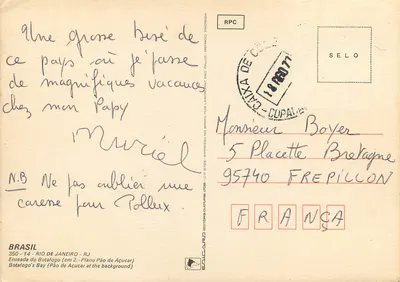 Une grosse bisé de
ce pays où je passe
de magnifiques vacances
chez mon Papy
Muriel
N.B Ne pas oublier une
caresse pour Pollux.
BRASIL
350 - 14 - RIO DE JANEIRO - RJ
Enseada do Botafogo (em 2.º Plano Pão de Açucar)
Botafogo's Bay (Pão de Açucar at the background)
RPC
CAIXA DE
18 AGO 77
COPAC
SELO
Monsieur Boyer
5 Placette Bretagne
95740 FREPILLON
FRANÇA